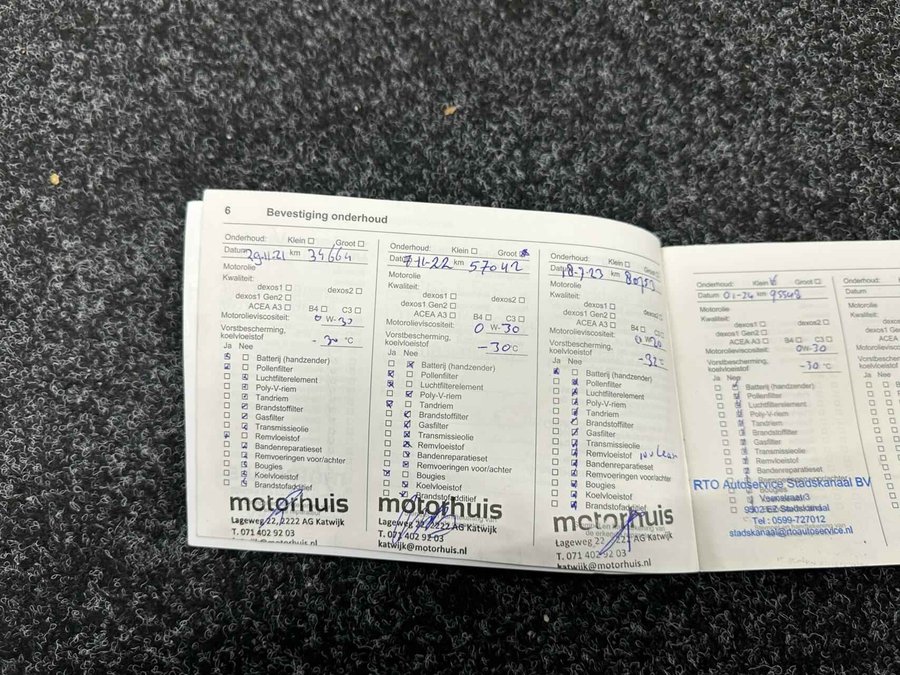 6 Bevestiging onderhoud
Onderhoud: Klein Groot
Datum 29-11-21 km 34664
Motorolie
Kwaliteit:
dexos1 dexos2
dexos1 Gen2
ACEA A3 B4 C3
Motorolieviscositeit: 0 W-30
Vorstbescherming,
koelvloeistof - 30 °C
Ja Nee
Batterij (handzender)
Pollenfilter
Luchtfilterelement
Poly-V-riem
Tandriem
Brandstoffilter
Gasfilter
Transmissieolie
Remvloeistof
Bandenreparatieset
Remvoeringen voor/achter
Bougies
Koelvloeistof
Brandstofadditief
motorhuis
Lageweg 22, 2222 AG Katwijk
T. 071 402 92 03
Onderhoud: Klein Groot
Datum 7-11-22 km 57042
Motorolie
Kwaliteit:
dexos1 dexos2
dexos1 Gen2
ACEA A3 B4 C3
Motorolieviscositeit: 0 W-30
Vorstbescherming,
koelvloeistof -30 °C
Ja Nee
Batterij (handzender)
Pollenfilter
Luchtfilterelement
Poly-V-riem
Tandriem
Brandstoffilter
Gasfilter
Transmissieolie
Remvloeistof
Bandenreparatieset
Remvoeringen voor/achter
Bougies
Koelvloeistof
Brandstofadditief
motorhuis
Lageweg 22, 2222 AG Katwijk
T. 071 402 92 03
katwijk@motorhuis.nl
Onderhoud: Klein Groot
Datum 18-7-23 km
Motorolie
Kwaliteit:
dexos1 dexos2
dexos1 Gen2
ACEA A3 B4 C3
Motorolieviscositeit: 0 W-30
Vorstbescherming,
koelvloeistof -32 °C
Ja Nee
Batterij (handzender)
Pollenfilter
Luchtfilterelement
Poly-V-riem
Tandriem
Brandstoffilter
Gasfilter
Transmissieolie
Remvloeistof
Bandenreparatieset
Remvoeringen voor/achter
Bougies
Koelvloeistof
Brandstofadditief
motorhuis
Lageweg 22, 2222 AG Katwijk
T. 071 402 92 03
katwijk@motorhuis.nl
Onderhoud: Klein Groot
Datum km
Motorolie
Kwaliteit:
dexos1 dexos2
dexos1 Gen2
ACEA A3 B4 C3
Motorolieviscositeit: 0W-30
Vorstbescherming,
koelvloeistof -30 °C
Ja Nee
Batterij (handzender)
Pollenfilter
Luchtfilterelement
Poly-V-riem
Tandriem
Brandstoffilter
Gasfilter
Transmissieolie
Remvloeistof
Bandenreparatieset
RTO Autoservice Stadskanaal BV
9502 EZ Stadskanaal
Tel : 0599-727012
stadskanaal@rtoautoservice.nl
Onderhoud:
Datum
Motorolie
Kwaliteit:
Motorolieviscosit
Vorstbescherm
koelvloeistof
Ja Nee